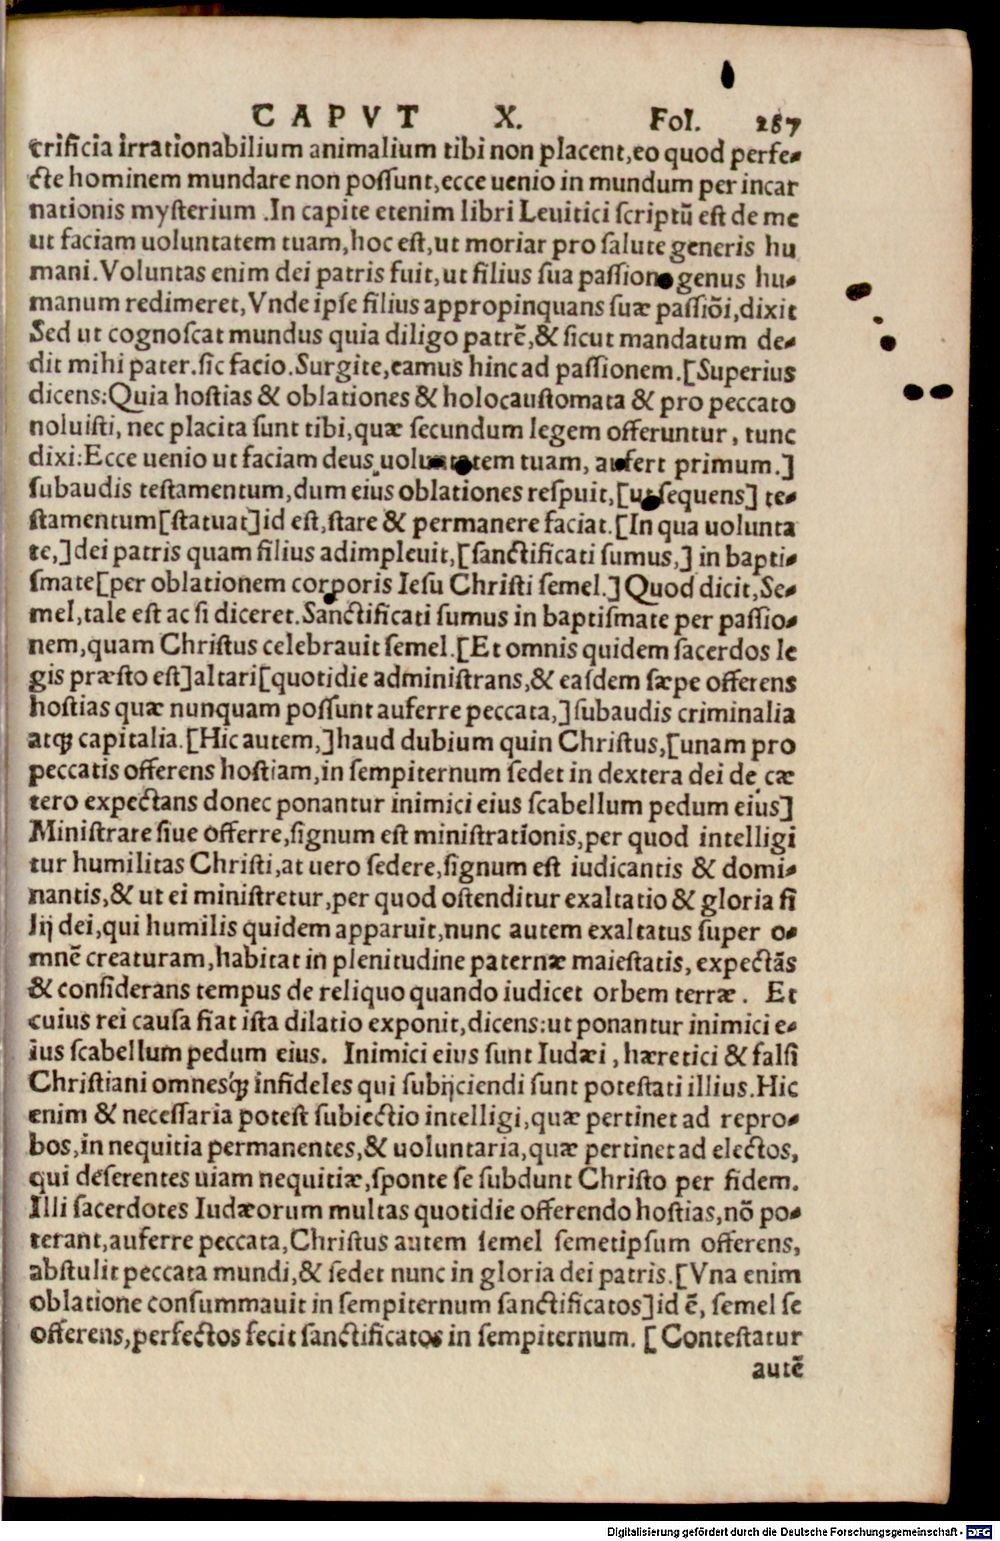 CAPVT X. Fol. 287
crificia irrationabilium animalium tibi non placent, eo quod perfe-
cte hominem mundare non possunt, ecce uenio in mundum per incar
nationis mysterium .In capite etenim libri Leuitici scriptū est de me
ut faciam uoluntatem tuam, hoc est, ut moriar pro salute generis hu
mani. Voluntas enim dei patris fuit, ut filius sua passione genus hu-
manum redimeret, Vnde ipse filius appropinquans suæ passiōi, dixit
Sed ut cognoscat mundus quia diligo patrē, & sicut mandatum de-
dit mihi pater. sic facio. Surgite, eamus hinc ad passionem. [Superius
dicens: Quia hostias & oblationes & holocaustomata & pro peccato
noluisti, nec placita sunt tibi, quæ secundum legem offeruntur, tunc
dixi: Ecce uenio ut faciam deus uoluntatem tuam, aufert primum.]
subaudis testamentum, dum eius oblationes respuit, [ut sequens] te-
stamentum [statuat] id est, stare & permanere faciat. [In qua uolunta
te,] dei patris quam filius adimpleuit, [sanctificati sumus,] in bapti-
smate [per oblationem corporis Iesu Christi semel.] Quod dicit, Se-
mel, tale est ac si diceret. Sanctificati sumus in baptismate per passio-
nem, quam Christus celebrauit semel. [Et omnis quidem sacerdos le
gis præsto est] altari [quotidie administrans, & easdem sæpe offerens
hostias quæ nunquam possunt auferre peccata,] subaudis criminalia
atq; capitalia. [Hic autem,] haud dubium quin Christus, [unam pro
peccatis offerens hostiam, in sempiternum sedet in dextera dei de cæ
tero expectans donec ponantur inimici eius scabellum pedum eius]
Ministrare siue offerre, signum est ministrationis, per quod intelligi
tur humilitas Christi, at uero sedere, signum est iudicantis & domi-
nantis, & ut ei ministretur, per quod ostenditur exaltatio & gloria fi
lij dei, qui humilis quidem apparuit, nunc autem exaltatus super o-
mnē creaturam, habitat in plenitudine paternæ maiestatis, expectās
& considerans tempus de reliquo quando iudicet orbem terræ. Et
cuius rei causa fiat ista dilatio exponit, dicens: ut ponantur inimici e-
ius scabellum pedum eius. Inimici eius sunt Iudæi, hæretici & falsi
Christiani omnesq; infideles qui subijciendi sunt potestati illius. Hic
enim & necessaria potest subiectio intelligi, quæ pertinet ad repro-
bos, in nequitia permanentes, & uoluntaria, quæ pertinet ad electos,
qui deserentes uiam nequitiæ, sponte se subdunt Christo per fidem.
Illi sacerdotes Iudæorum multas quotidie offerendo hostias, nō po-
terant, auferre peccata, Christus autem semel semetipsum offerens,
abstulit peccata mundi, & sedet nunc in gloria dei patris. [Vna enim
oblatione consummauit in sempiternum sanctificatos] id ē, semel se
offerens, perfectos fecit sanctificatos in sempiternum. [Contestatur
autē
Digitalisierung gefördert durch die Deutsche Forschungsgemeinschaft - DFG